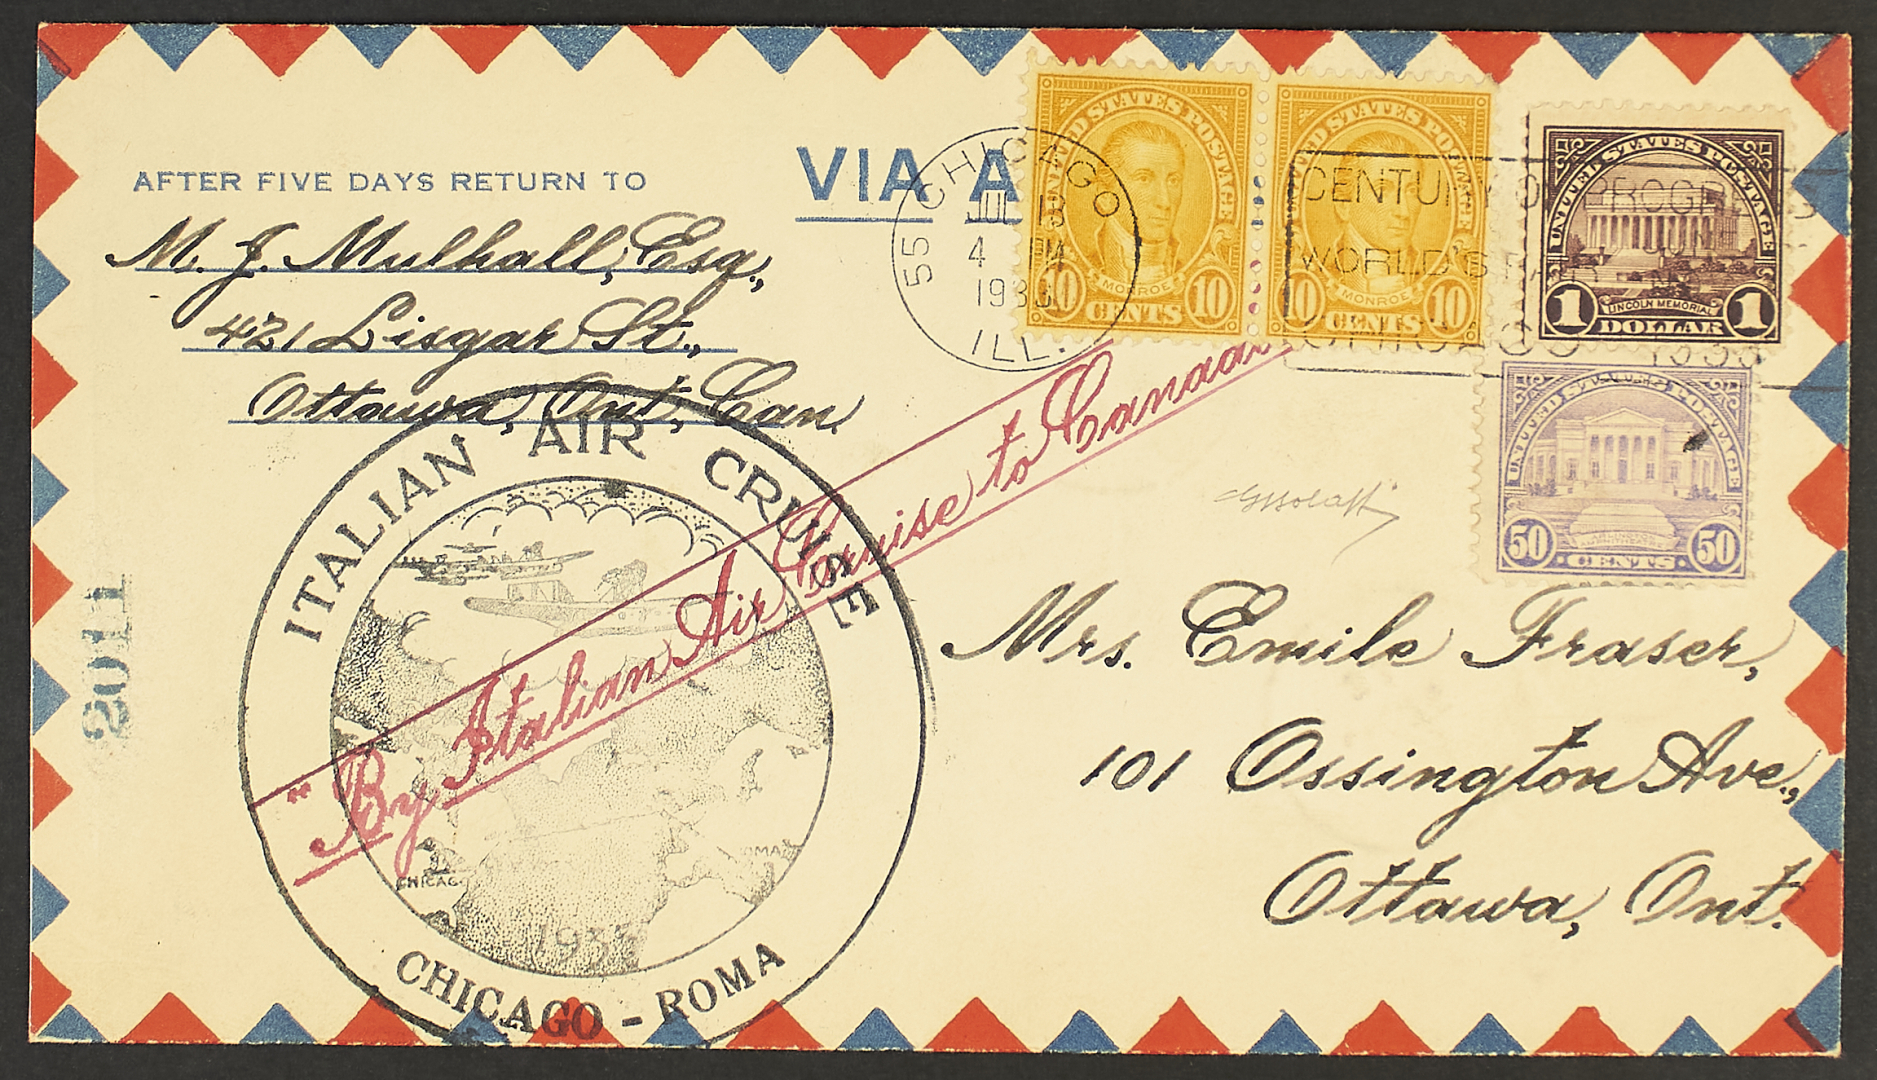 AFTER FIVE DAYS RETURN TO
M. J. Mulhall, Esq.,
421 Lisgar St.,
Ottawa, Ont., Can.
VIA A
55 CHICAGO
JUL 18
4 PM
1933
ILL.
CENTURY OF PROGRESS
WORLD'S FAIR
CHICAGO 1933
UNITED STATES POSTAGE
MONROE
10 CENTS 10
UNITED STATES POSTAGE
MONROE
10 CENTS 10
UNITED STATES POSTAGE
LINCOLN MEMORIAL
1 DOLLAR 1
UNITED STATES POSTAGE
50 CENTS 50
"By Italian Air Cruise to Canada
ITALIAN AIR CRUISE
CHICAGO
ROMA
1933
CHICAGO - ROMA
2011
Mrs. Emile Fraser,
101 Ossington Ave.,
Ottawa, Ont.